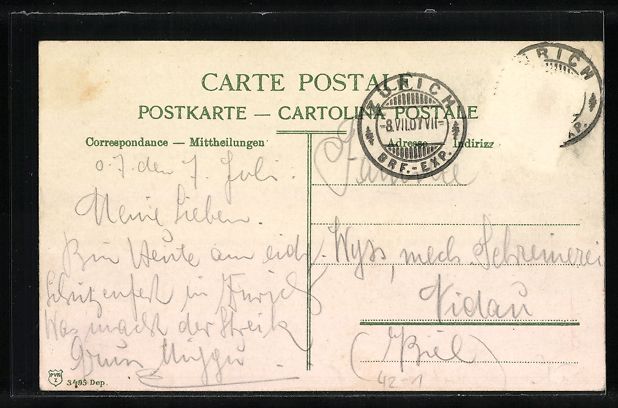 CARTE POSTALE
POSTKARTE — CARTOLINA POSTALE
Correspondance — Mittheilungen
Adresse — Indirizz
ZÜRICH
-8.VII.07 VII-
BRF.-EXP.
ZÜRICH
XP.
07 den 7. Juli.
Meine Lieben.
Bin Heute am eidg.
Schützenfest in Zürich
Was macht der Streik
Familie
Wyss, mech. Schreinerei
Nidau
(Biel)
42-1
3495 Dep.